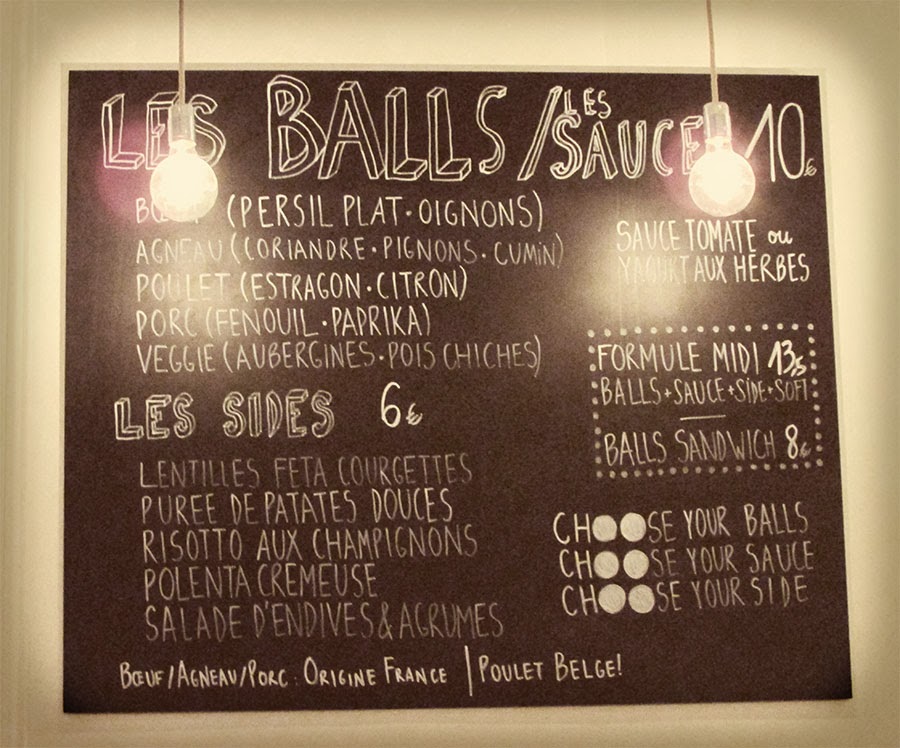 LES BALLS / LES SAUCES 10€
BŒUF (PERSIL PLAT · OIGNONS)
AGNEAU (CORIANDRE · PIGNONS · CUMIN)
POULET (ESTRAGON · CITRON)
PORC (FENOUIL · PAPRIKA)
VEGGIE (AUBERGINES · POIS CHICHES)
SAUCE TOMATE ou
YAOURT AUX HERBES
LES SIDES 6€
LENTILLES FETA COURGETTES
PUREE DE PATATES DOUCES
RISOTTO AUX CHAMPIGNONS
POLENTA CREMEUSE
SALADE D'ENDIVES & AGRUMES
FORMULE MIDI 13,5
BALLS + SAUCE + SIDE + SOFT
BALLS SANDWICH 8€
CHOOSE YOUR BALLS
CHOOSE YOUR SAUCE
CHOOSE YOUR SIDE
BŒUF/AGNEAU/PORC : ORIGINE FRANCE | POULET BELGE!